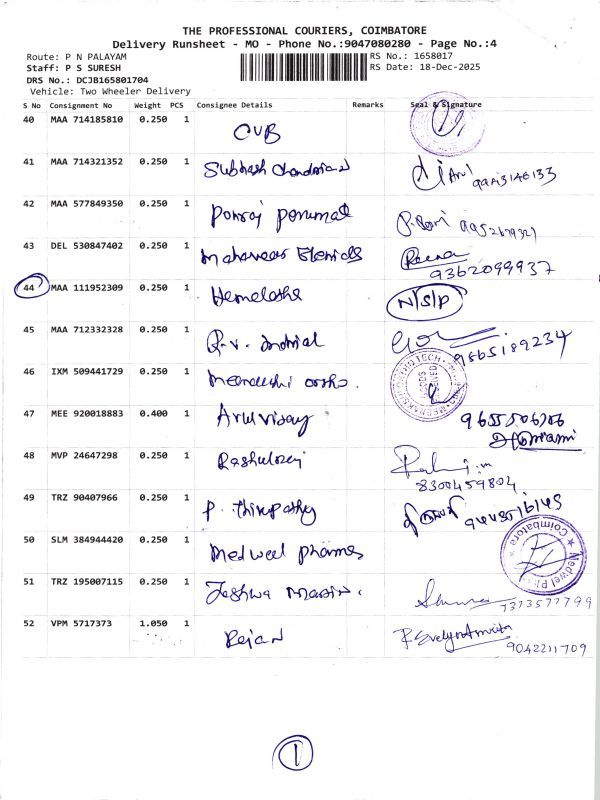 THE PROFESSIONAL COURIERS, COIMBATORE
Delivery Runsheet - MO - Phone No.:9047080280 - Page No.:4
Route: P N PALAYAM RS No.: 1658017
Staff: P S SURESH RS Date: 18-Dec-2025
DRS No.: DCJB165801704
Vehicle: Two Wheeler Delivery
S No Consignment No Weight PCS Consignee Details Remarks Seal & Signature
40 MAA 714185810 0.250 1 CUB
41 MAA 714321352 0.250 1 Subhash
42 MAA 577849350 0.250 1 Ponraj Perumal
43 DEL 530847402 0.250 1 Mahaveer
9362099937
44 MAA 111952309 0.250 1 Hemelatha N/S/P
45 MAA 712332328 0.250 1 R.V. 9865189234
46 IXM 509441729 0.250 1
47 MEE 920018883 0.400 1 Arul Vijay
48 MVP 24647298 0.250 1
8300459804
49 TRZ 90407966 0.250 1 P. Thirupathy
50 SLM 384944420 0.250 1 Medweel Pharma
Coimbatore
51 TRZ 195007115 0.250 1
7373577799
52 VPM 5717373 1.050 1 Rajan
9042211709
1